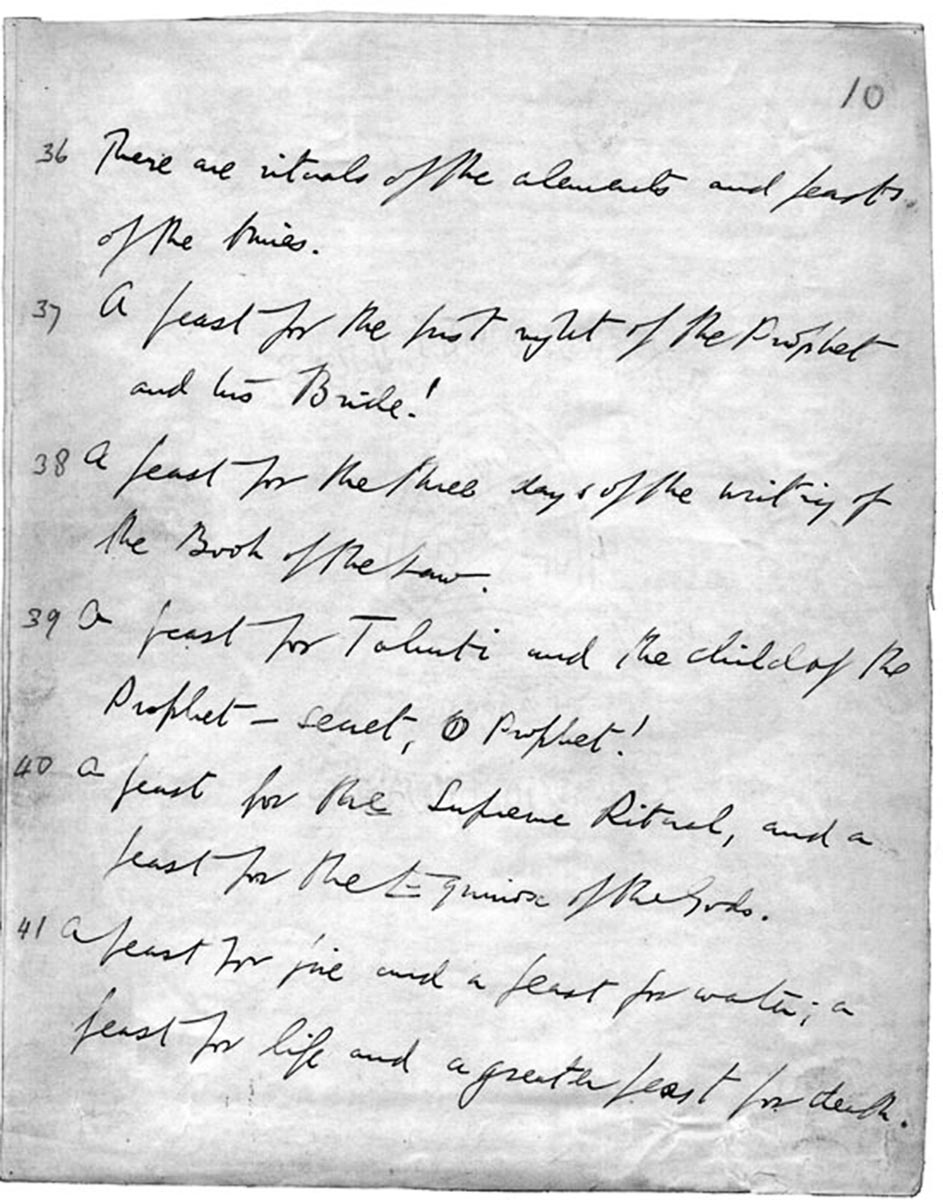 10
36 There are rituals of the elements and feasts
of the times.
37 A feast for the first night of the Prophet
and his Bride!
38 A feast for the three days of the writing of
the Book of the Law.
39 A feast for Tahuti and the child of the
Prophet – secret, O Prophet!
40 a feast for the Supreme Ritual, and a
feast for the Equinox of the Gods.
41 A feast for fire and a feast for water; a
feast for life and a greater feast for death.